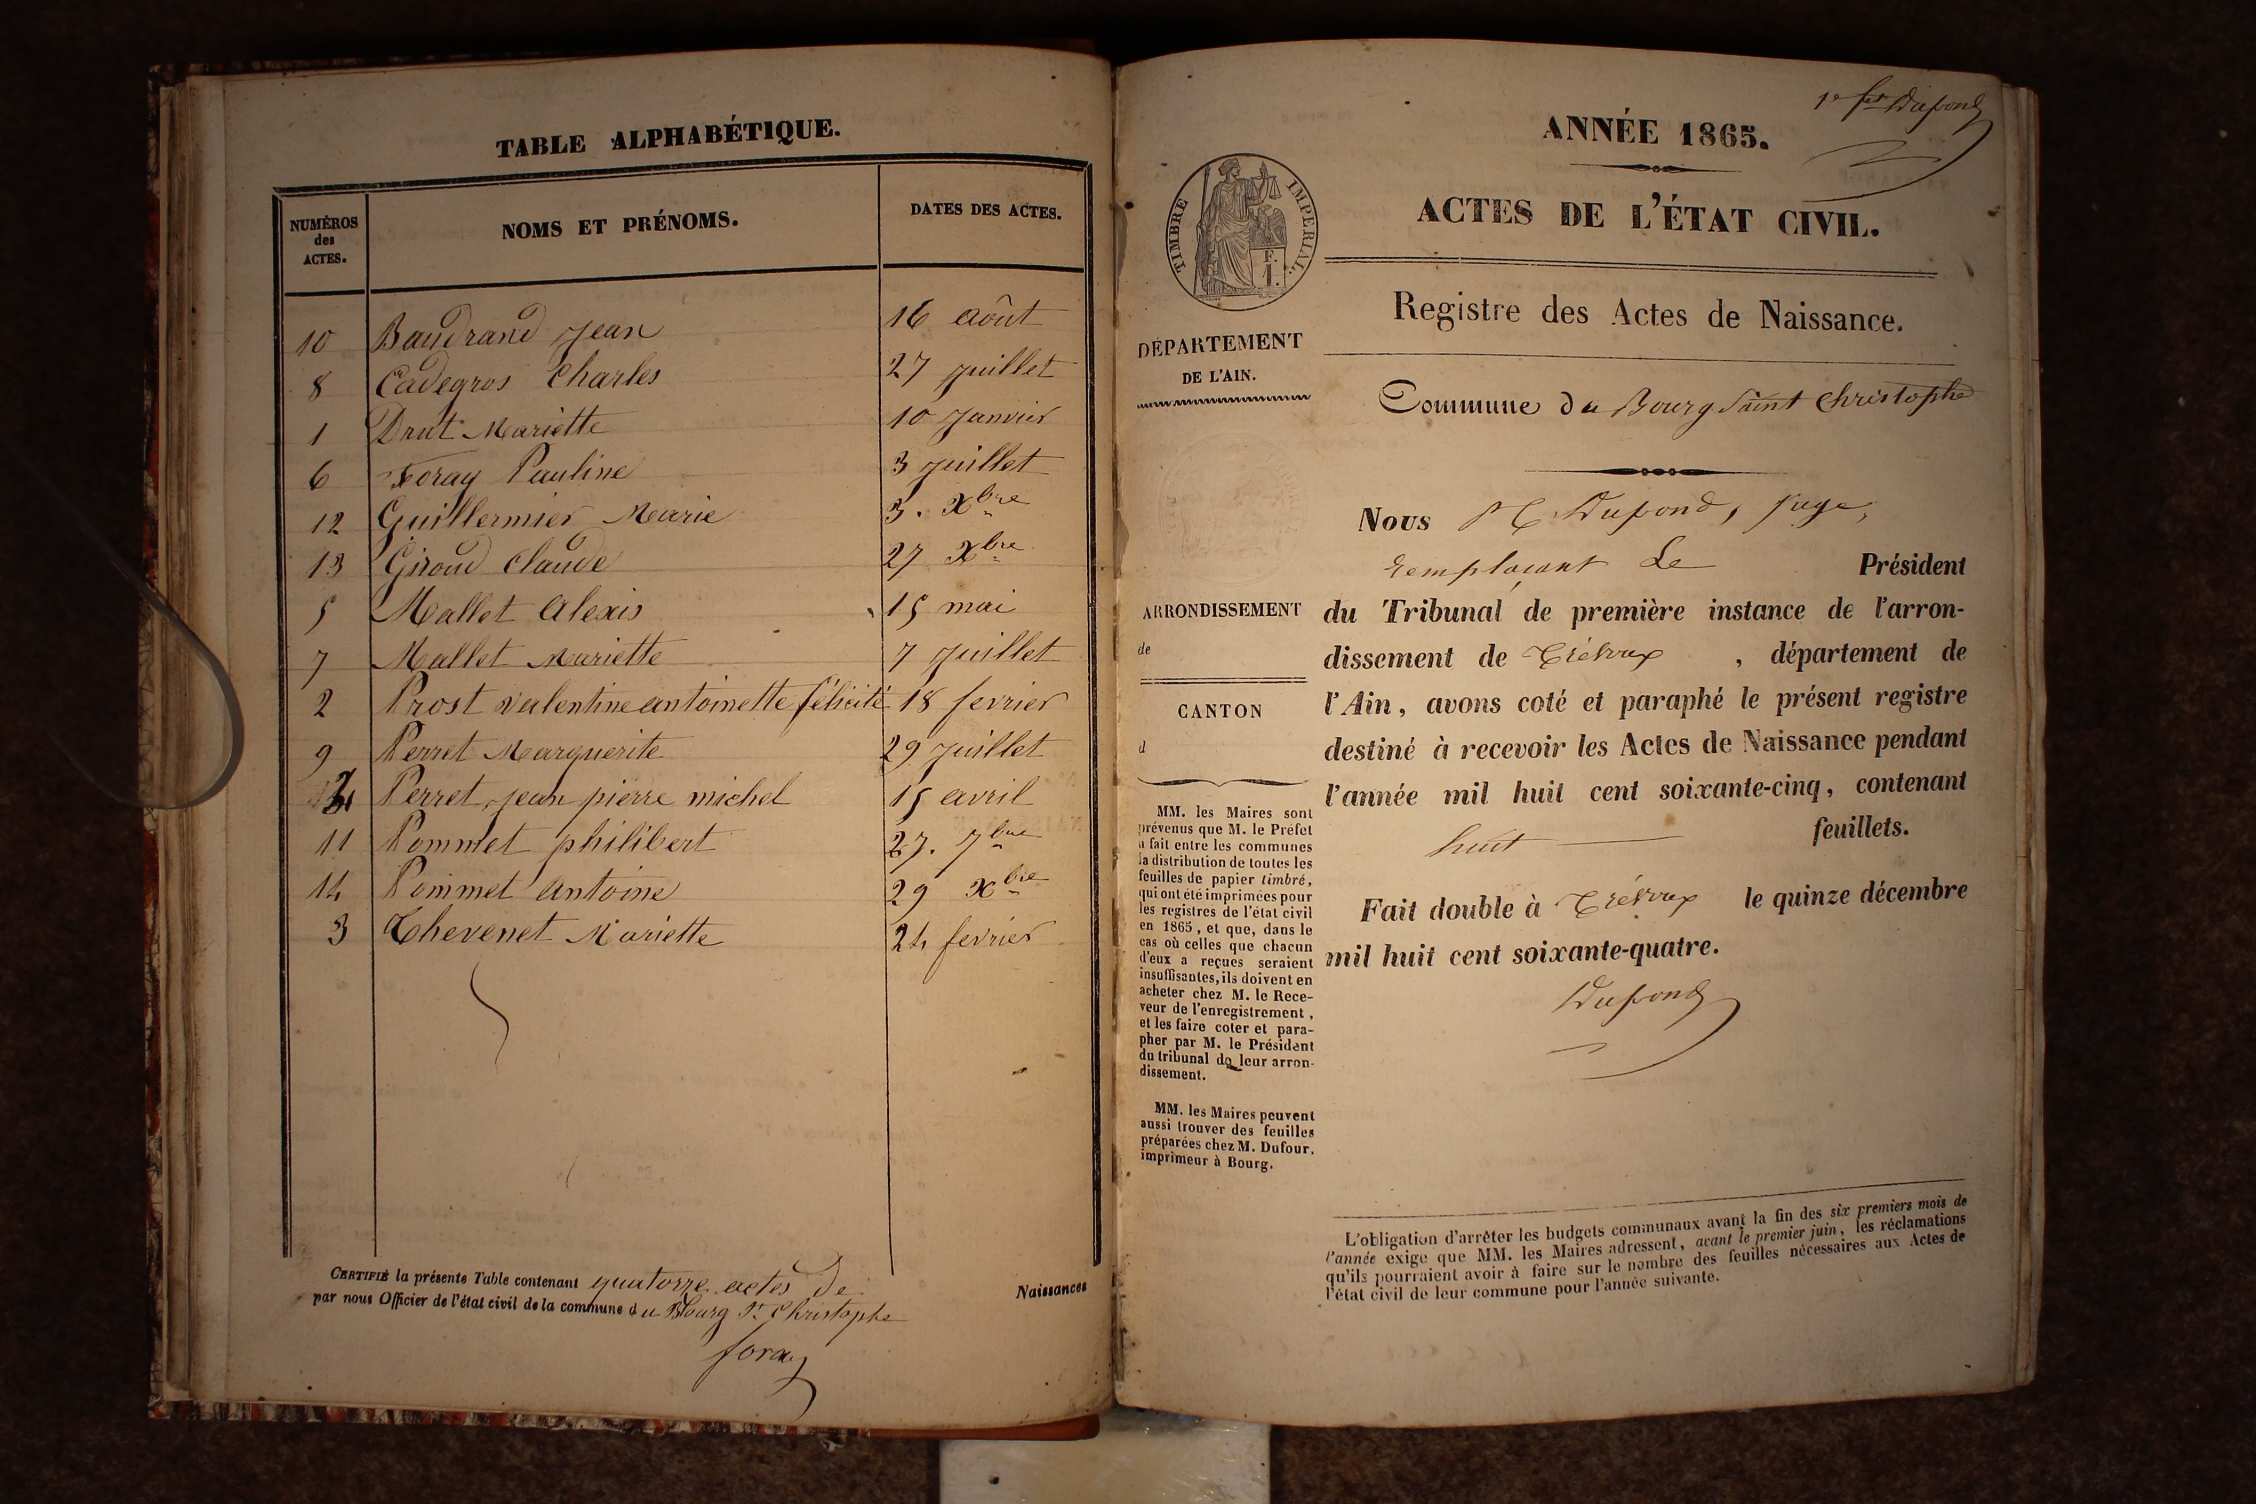 TABLE ALPHABÉTIQUE.
NUMÉROS des ACTES.
NOMS ET PRÉNOMS.
DATES DES ACTES.
10 Baudrand Jean 16 août
8 Cadegros Charles 27 juillet
1 Drut Mariette 10 janvier
6 Foray Pauline 3 juillet
12 Guillermier Marie 3. Xbre
13 Giroud Claude 27 Xbre
5 Mallet Alexis 15 mai
7 Mallet Mariette 7 juillet
2 Prost Valentine antoinette félicité 18 fevrier
9 Perret Marguerite 29 juillet
4 Perret, jean pierre michel 15 avril
11 Pommet philibert 27. 7bre
14 Pommet Antoine 29 Xbre
3 Thevenet Mariette 24 fevrier
CERTIFIÉ la présente Table contenant quatorze actes de Naissances
par nous Officier de l'état civil de la commune du Bourg St Christophe
foray
1er fet Dupond
ANNÉE 1865.
ACTES DE L'ÉTAT CIVIL.
Registre des Actes de Naissance.
Commune du Bourg Saint Christophe
TIMBRE IMPERIAL.
F.
1.
DÉPARTEMENT
DE L'AIN.
ARRONDISSEMENT
de
CANTON
d
MM. les Maires sont
prévenus que M. le Préfet
a fait entre les communes
la distribution de toutes les
feuilles de papier timbré,
qui ont été imprimées pour
les registres de l'état civil
en 1865, et que, dans le
cas où celles que chacun
d'eux a reçues seraient
insuffisantes, ils doivent en
acheter chez M. le Rece-
veur de l'enregistrement,
et les faire coter et para-
pher par M. le Président
du tribunal de leur arron-
dissement.
MM. les Maires peuvent
aussi trouver des feuilles
préparées chez M. Dufour,
imprimeur à Bourg.
Nous Dupond, juge,
remplaçant Le Président
du Tribunal de première instance de l'arron-
dissement de Trévoux , département de
l'Ain, avons coté et paraphé le présent registre
destiné à recevoir les Actes de Naissance pendant
l'année mil huit cent soixante-cinq, contenant
huit feuillets.
Fait double à Trévoux le quinze décembre
mil huit cent soixante-quatre.
Dupond
L'obligation d'arrêter les budgets communaux avant la fin des six premiers mois de
l'année exige que MM. les Maires adressent, avant le premier juin, les réclamations
qu'ils pourraient avoir à faire sur le nombre des feuilles nécessaires aux Actes de
l'état civil de leur commune pour l'année suivante.